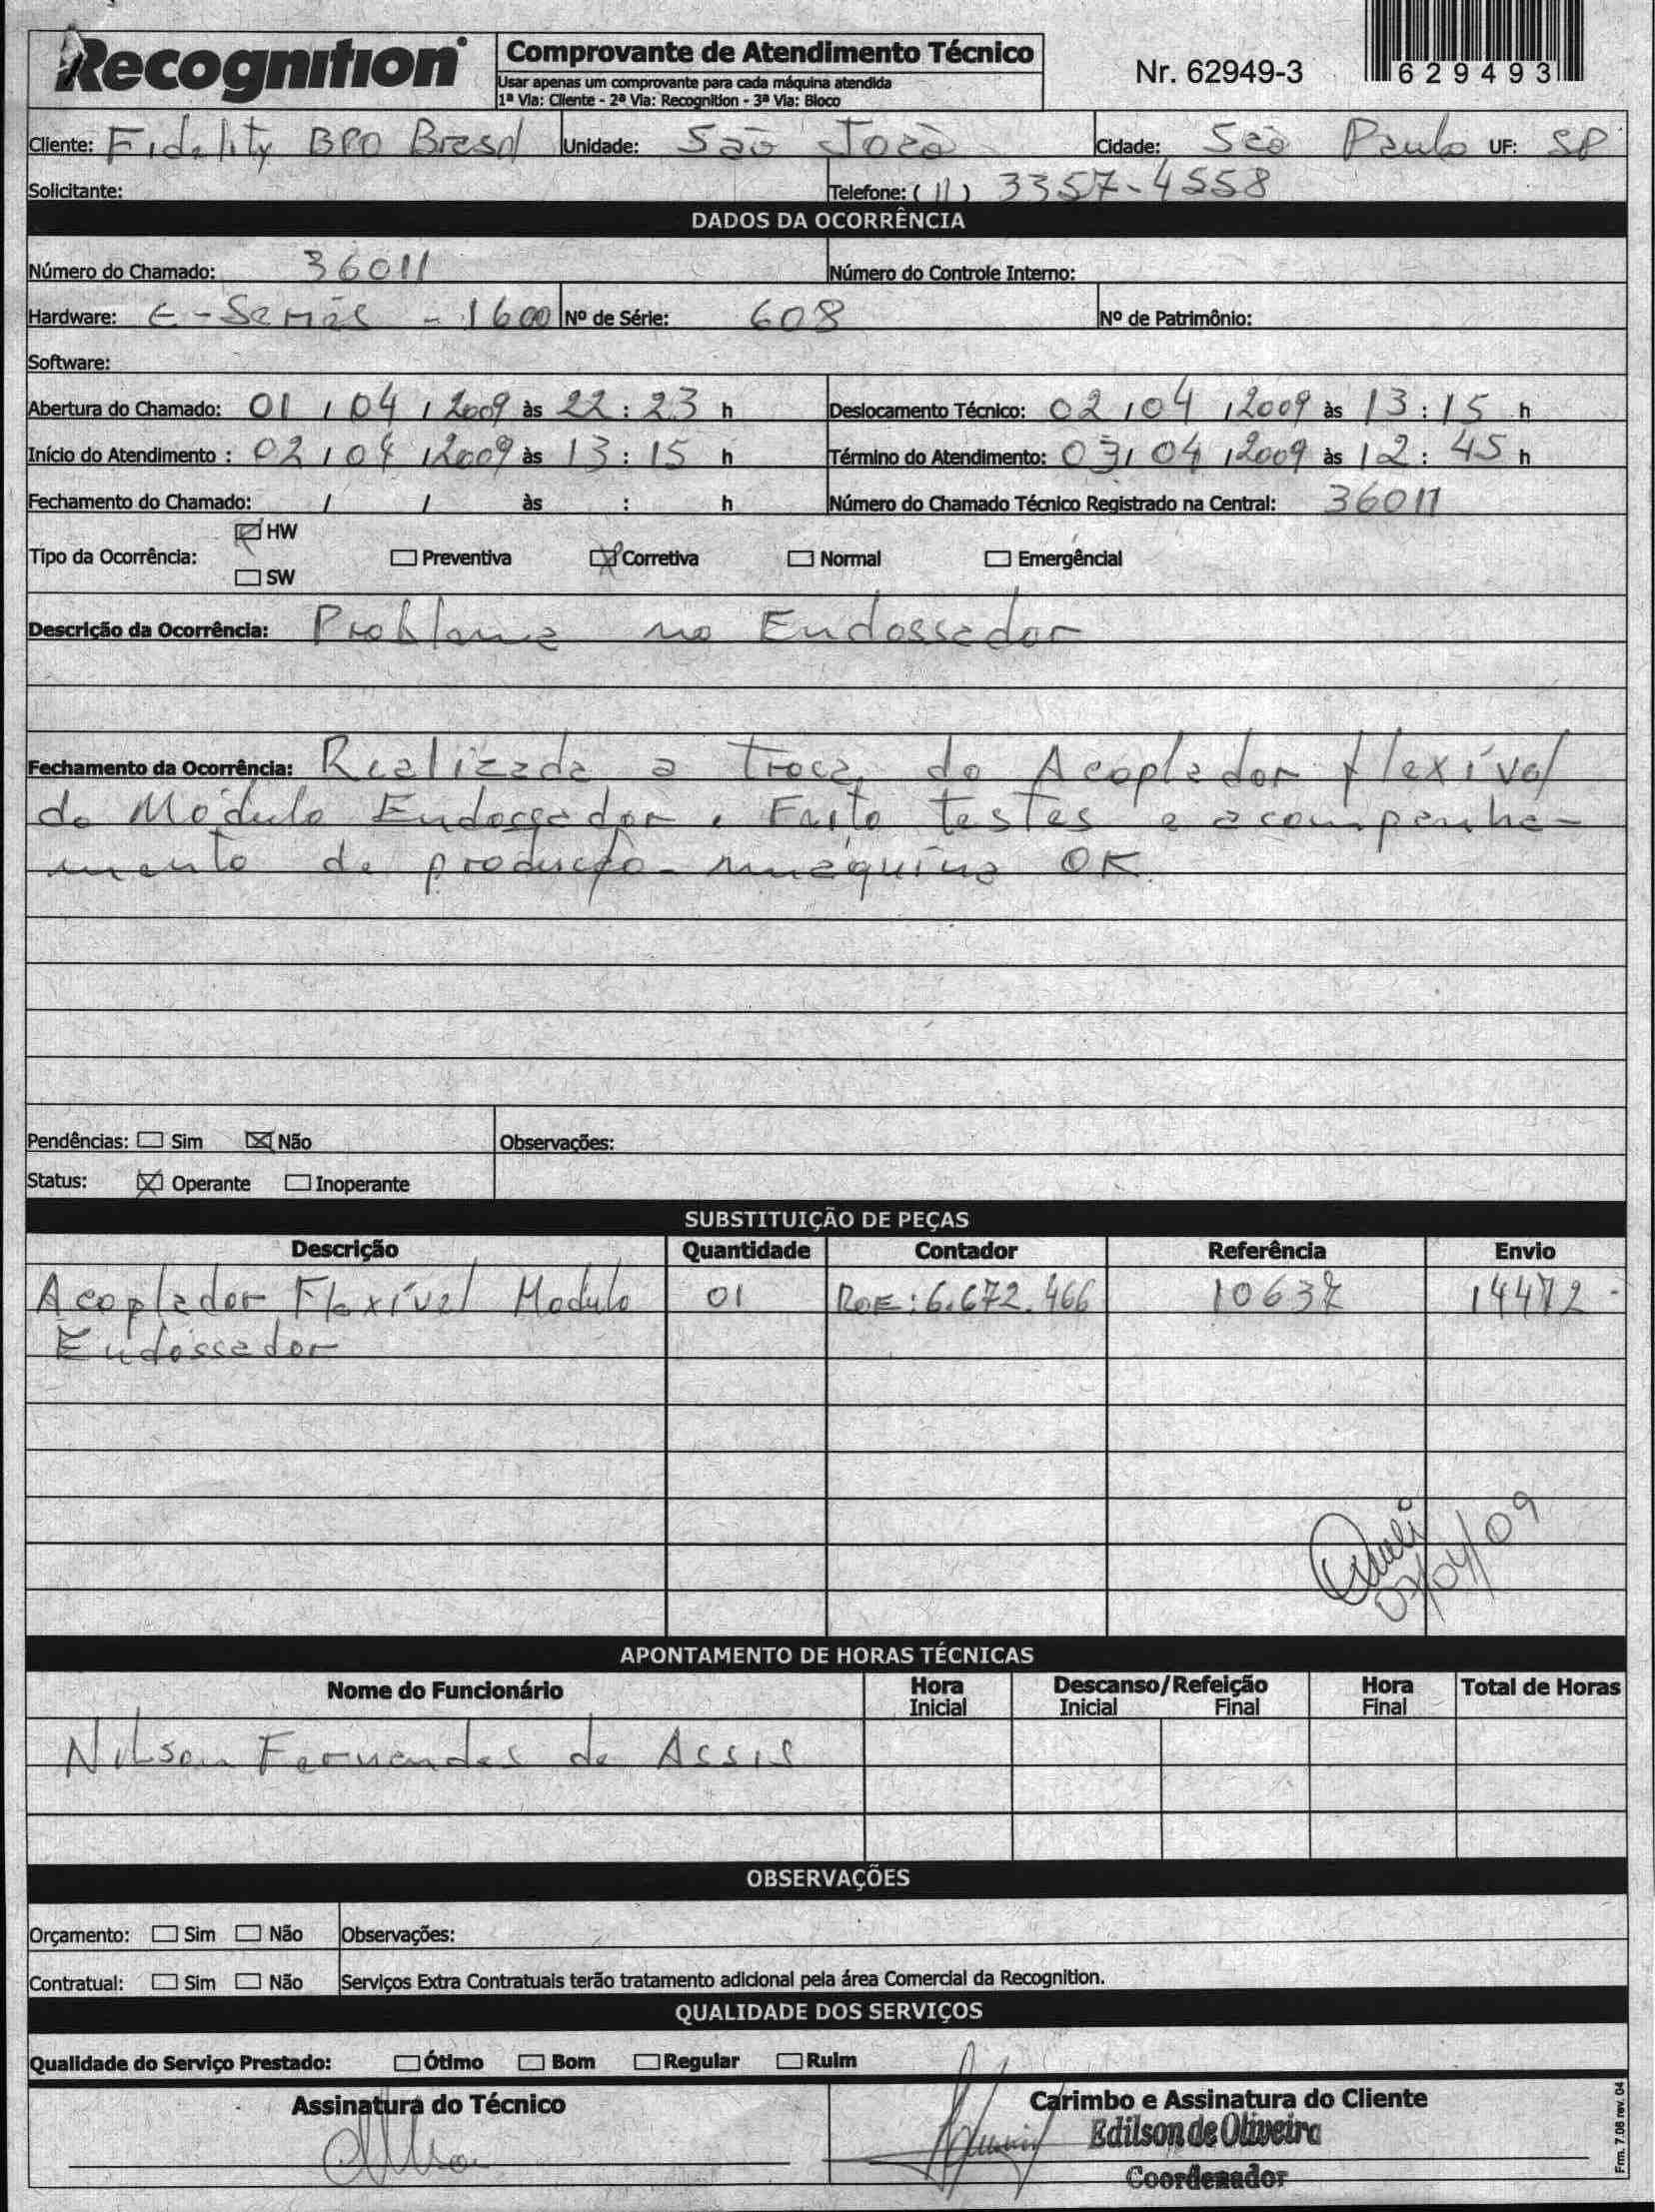 Recognition
Comprovante de Atendimento Técnico
Usar apenas um comprovante para cada máquina atendida
1ª Via: Cliente - 2ª Via: Recognition - 3ª Via: Bloco
Nr. 62949-3
629493
Cliente: Fidelity BPO Brasil Unidade: São João Cidade: São Paulo UF: SP
Solicitante: Telefone: (11) 3357-4558
DADOS DA OCORRÊNCIA
Número do Chamado: 36011 Número do Controle Interno:
Hardware: E-Series - 1600 Nº de Série: 608 Nº de Patrimônio:
Software:
Abertura do Chamado: 01/04/2009 às 22:23 h Deslocamento Técnico: 02/04/2009 às 13:15 h
Início do Atendimento : 02/04/2009 às 13:15 h Término do Atendimento: 03/04/2009 às 12:45 h
Fechamento do Chamado: / / às : h Número do Chamado Técnico Registrado na Central: 36011
Tipo da Ocorrência: HW SW Preventiva Corretiva Normal Emergêncial
Descrição da Ocorrência: Problema no Endossador
Fechamento da Ocorrência: Realizada a troca do Acoplador flexível
do Módulo Endossador. Feito testes e acompanha-
mento de produção máquina OK.
Pendências: Sim Não Observações:
Status: Operante Inoperante
SUBSTITUIÇÃO DE PEÇAS
Descrição Quantidade Contador Referência Envio
Acoplador Flexível Modulo 01 ROE: 6.672.466 10637 14472
Endossador
/04/09
APONTAMENTO DE HORAS TÉCNICAS
Nome do Funcionário Hora Inicial Descanso/Refeição Inicial Final Hora Final Total de Horas
Nilson Fernandes de Assis
OBSERVAÇÕES
Orçamento: Sim Não Observações:
Contratual: Sim Não Serviços Extra Contratuais terão tratamento adicional pela área Comercial da Recognition.
QUALIDADE DOS SERVIÇOS
Qualidade do Serviço Prestado: Ótimo Bom Regular Ruim
Assinatura do Técnico Carimbo e Assinatura do Cliente
Edilson de Oliveira
Coordenador
Frm. 7.06 rev. 04